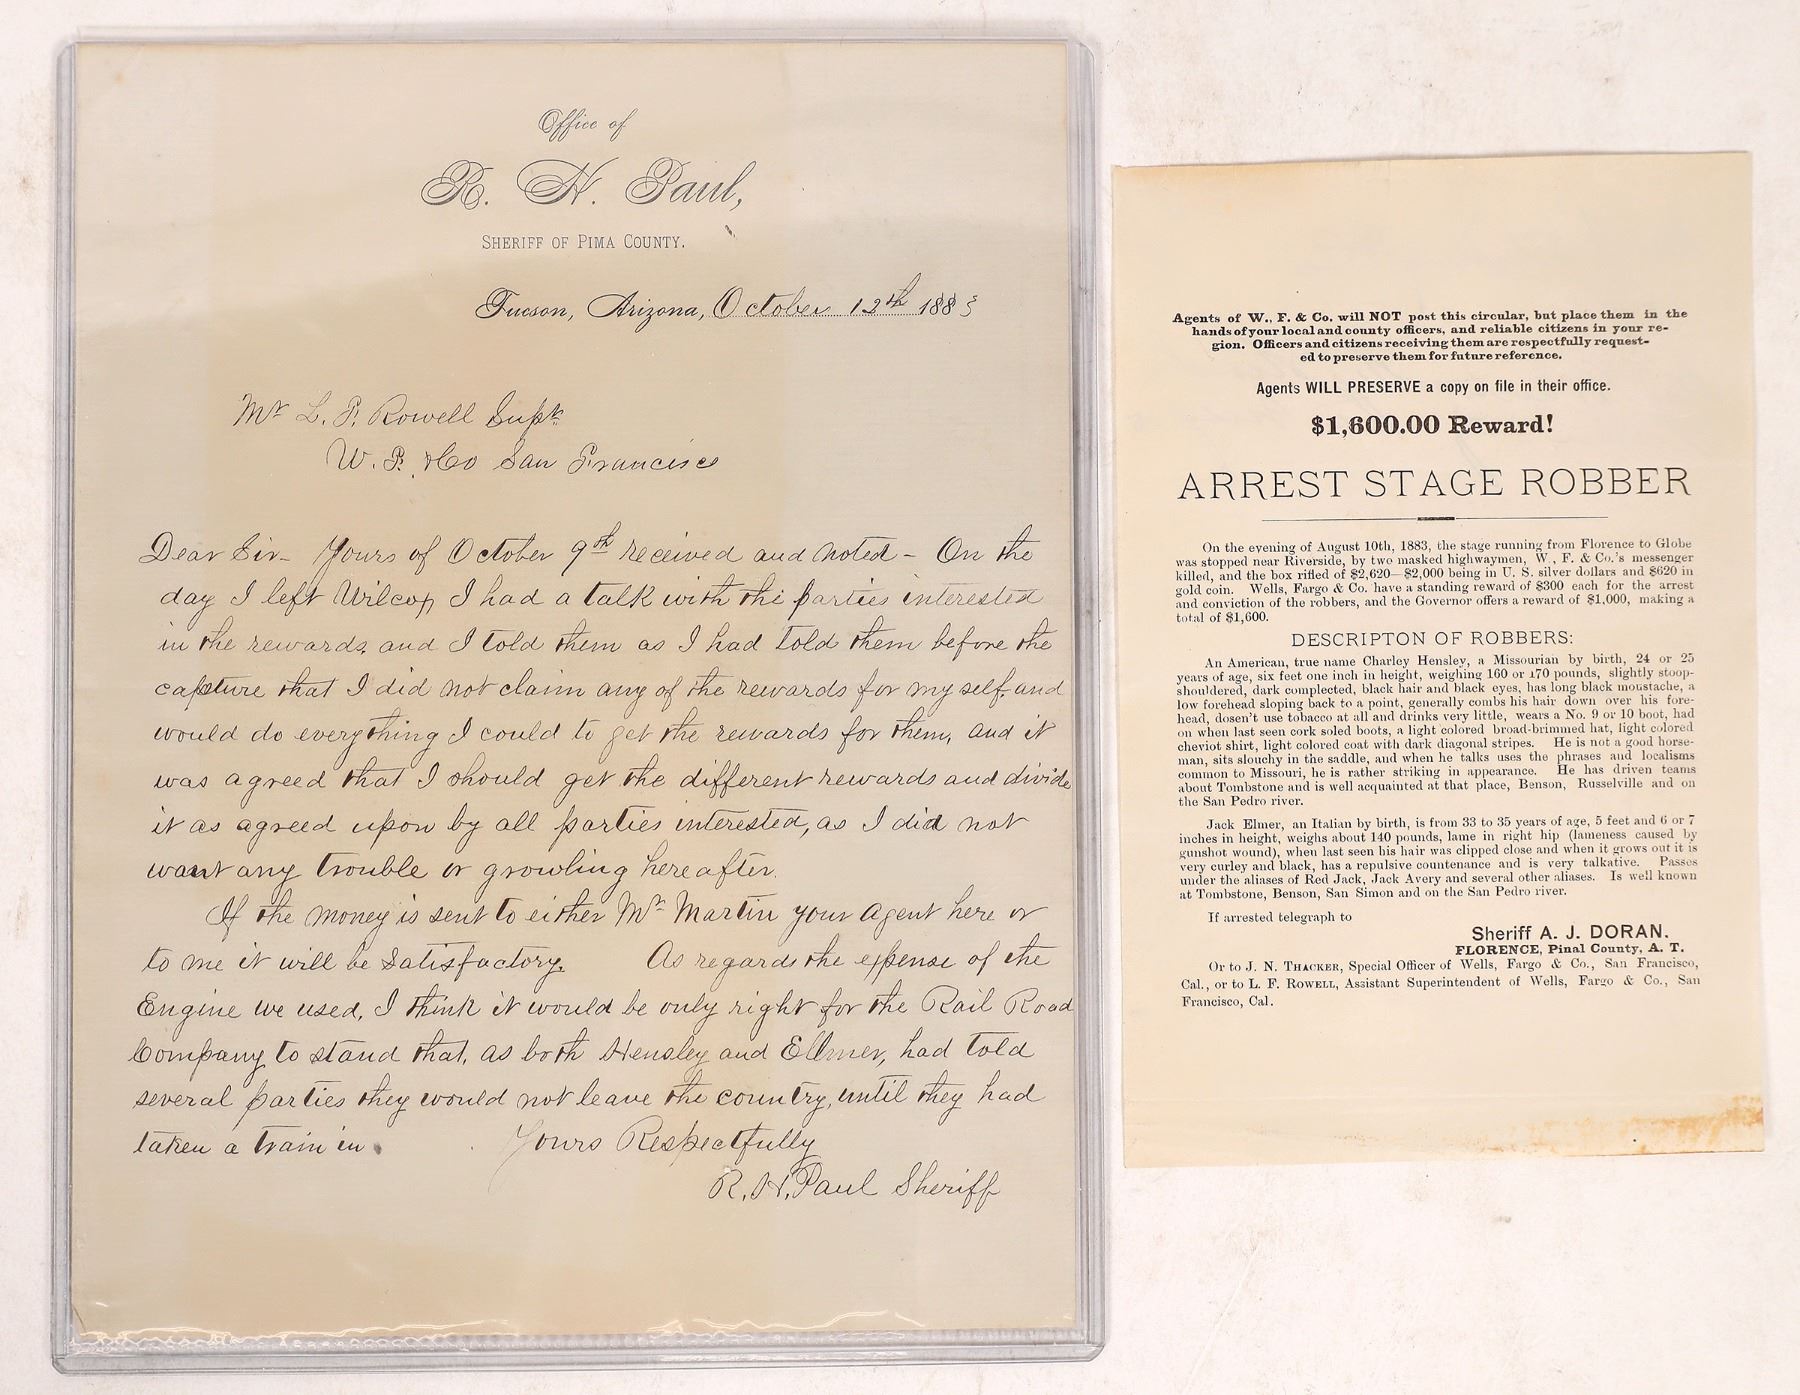 Office of
R. H. Paul,
SHERIFF OF PIMA COUNTY.
Tucson, Arizona, October 12th 1883
Mr L. F. Rowell Supt
W. F. & Co San Francisco
Dear Sir- Yours of October 9th received and noted - On the
day I left Wilcox I had a talk with the parties interested
in the rewards, and I told them as I had told them before the
capture that I did not claim any of the rewards for my self, and
would do everything I could to get the rewards for them, and it
was agreed that I should get the different rewards and divide
it as agreed upon by all parties interested, as I did not
want any trouble or growling hereafter.
If the money is sent to either Mr Martin your Agent here or
to me it will be Satisfactory. As regards the expense of the
Engine we used, I think it would be only right for the Rail Road
Company to stand that, as both Hensley and Ellmer, had told
several parties they would not leave the country, until they had
taken a train in.
Yours Respectfully
R. H. Paul Sheriff
Agents of W., F. & Co. will NOT post this circular, but place them in the
hands of your local and county officers, and reliable citizens in your re-
gion. Officers and citizens receiving them are respectfully request-
ed to preserve them for future reference.
Agents WILL PRESERVE a copy on file in their office.
$1,600.00 Reward!
ARREST STAGE ROBBER
On the evening of August 10th, 1883, the stage running from Florence to Globe
was stopped near Riverside, by two masked highwaymen, W., F. & Co.'s messenger
killed, and the box rifled of $2,620—$2,000 being in U. S. silver dollars and $620 in
gold coin. Wells, Fargo & Co. have a standing reward of $300 each for the arrest
and conviction of the robbers, and the Governor offers a reward of $1,000, making a
total of $1,600.
DESCRIPTON OF ROBBERS:
An American, true name Charley Hensley, a Missourian by birth, 24 or 25
years of age, six feet one inch in height, weighing 160 or 170 pounds, slightly stoop-
shouldered, dark complected, black hair and black eyes, has long black moustache, a
low forehead sloping back to a point, generally combs his hair down over his fore-
head, dosen't use tobacco at all and drinks very little, wears a No. 9 or 10 boot, had
on when last seen cork soled boots, a light colored broad-brimmed hat, light colored
cheviot shirt, light colored coat with dark diagonal stripes. He is not a good horse-
man, sits slouchy in the saddle, and when he talks uses the phrases and localisms
common to Missouri, he is rather striking in appearance. He has driven teams
about Tombstone and is well acquainted at that place, Benson, Russelville and on
the San Pedro river.
Jack Elmer, an Italian by birth, is from 33 to 35 years of age, 5 feet and 6 or 7
inches in height, weighs about 140 pounds, lame in right hip (lameness caused by
gunshot wound), when last seen his hair was clipped close and when it grows out it is
very curley and black, has a repulsive countenance and is very talkative. Passes
under the aliases of Red Jack, Jack Avery and several other aliases. Is well known
at Tombstone, Benson, San Simon and on the San Pedro river.
If arrested telegraph to
Sheriff A. J. DORAN.
FLORENCE, Pinal County, A. T.
Or to J. N. THACKER, Special Officer of Wells, Fargo & Co., San Francisco,
Cal., or to L. F. ROWELL, Assistant Superintendent of Wells, Fargo & Co., San
Francisco, Cal.